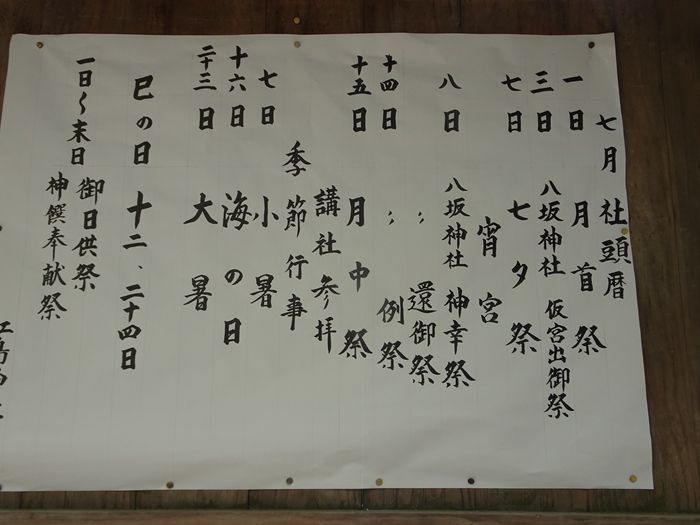 七月 社頭暦
一日 月首祭
三日 八坂神社 仮宮出御祭
七日 七夕祭
宵宮
八日 八坂神社 神幸祭
〃 還御祭
十四日 〃 例祭
十五日 月中祭
講社参拝
季節行事
七日 小暑
十六日 海の日
二十三日 大暑
巳の日 十二、二十四日
一日〜末日 御日供祭
神饌奉献祭